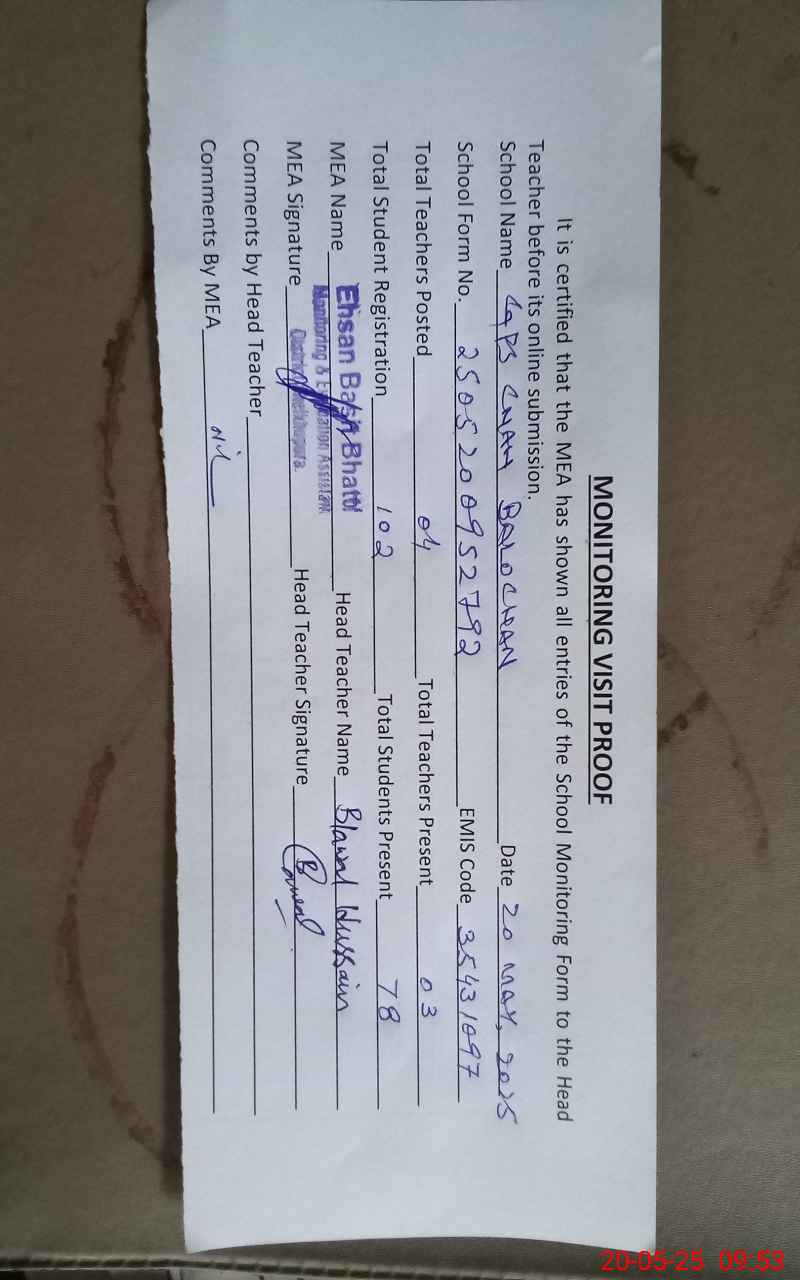 MONITORING VISIT PROOF
It is certified that the MEA has shown all entries of the School Monitoring Form to the Head
Teacher before its online submission.
School Name GPS CHAH BALOCHAN Date 20 MAY, 2025
School Form No. 2505200952792 EMIS Code 35431097
Total Teachers Posted 04 Total Teachers Present 03
Total Student Registration 102 Total Students Present 78
MEA Name Ehsan Basit Bhatti Head Teacher Name Blawal Hussain
Monitoring & Evaluation Assistant
District Sheikhupura.
MEA Signature Head Teacher Signature
Comments by Head Teacher
Comments By MEA Nil
20-05-25 09:53